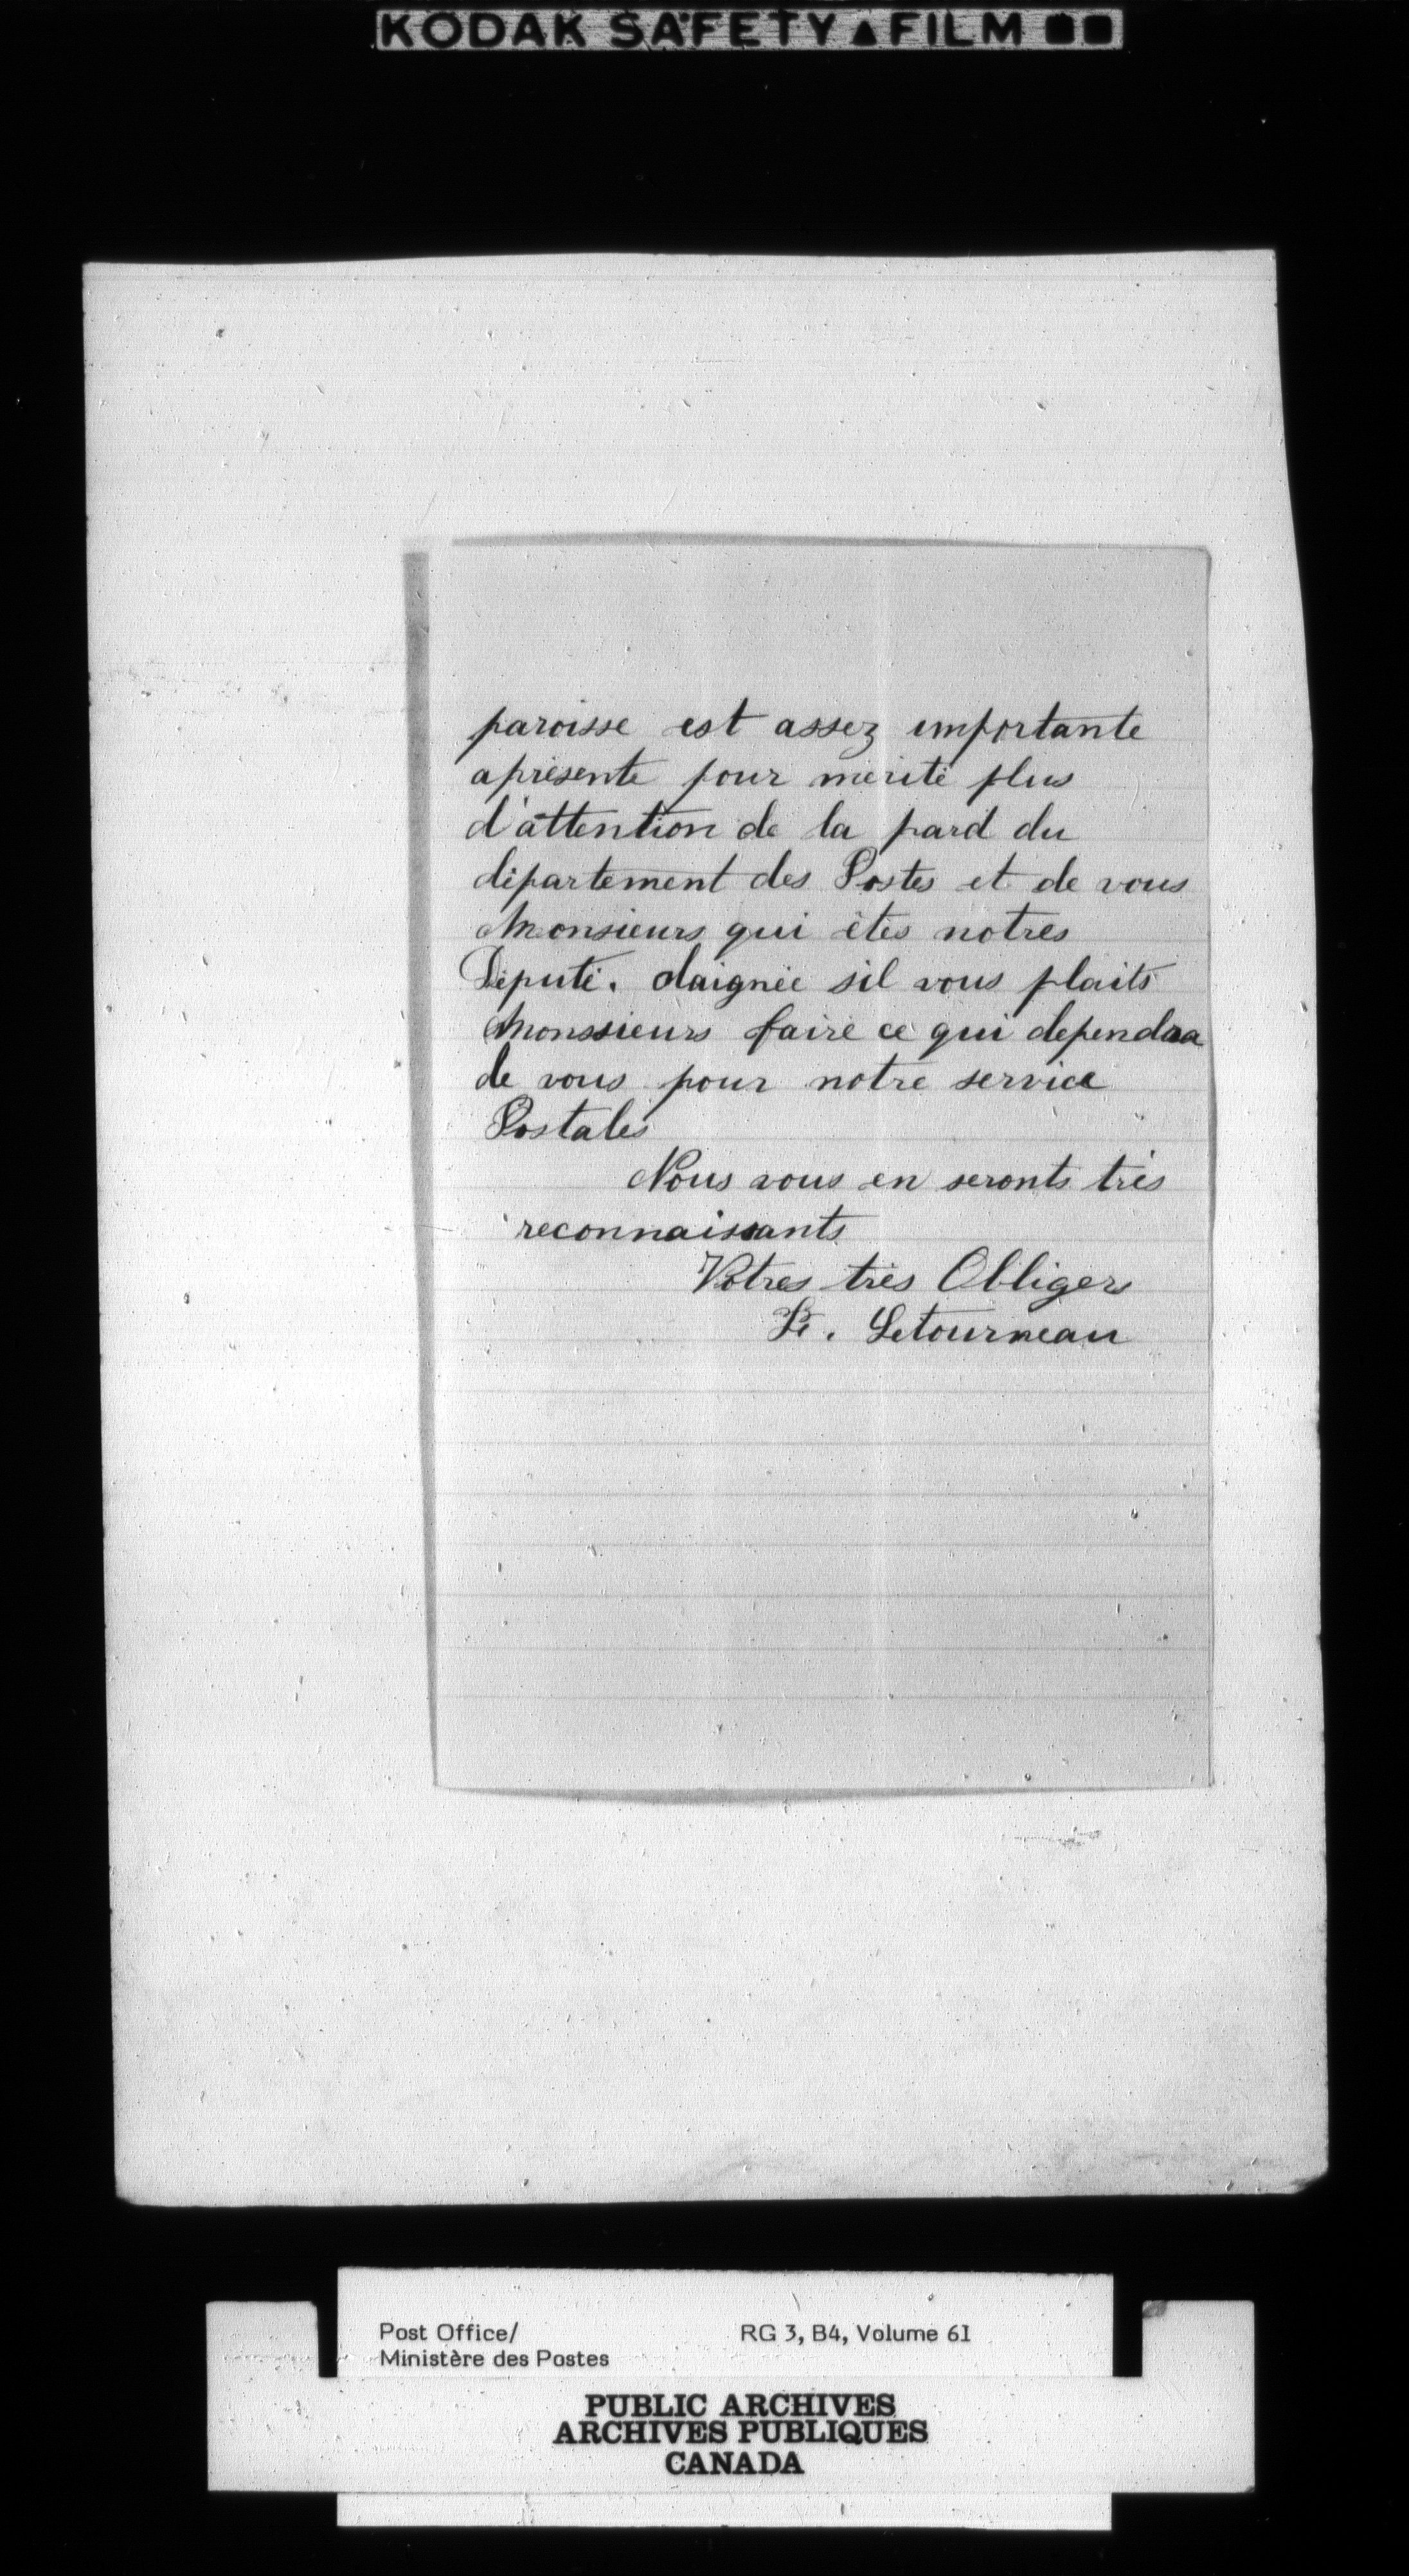 KODAK SAFETY▲FILM ■■
paroisse est assez importante
apresente pour mérité plus
d'attention de la pard du
département des Postes et de vous
Monsieurs qui êtes notres
Députe. daignée sil vous plaits
Monssieurs faire ce qui dependra
de vous pour notre service
Postales
Nous vous en seronts très
reconnaissants
Votres très Obligers
Letourneau
Post Office/
Ministère des Postes
RG 3, B4, Volume 61
PUBLIC ARCHIVES
ARCHIVES PUBLIQUES
CANADA